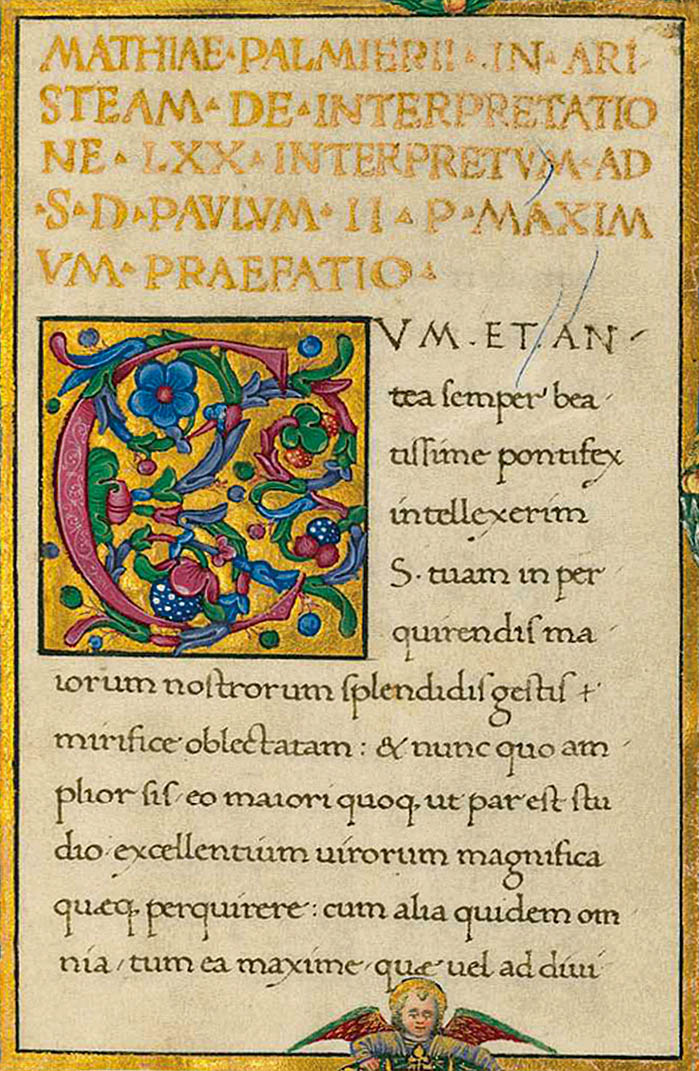 MATHIAE · PALMIERII · IN · ARI
STEAM · DE · INTERPRETATIO
NE · LXX · INTERPRETVM · AD
· S · D · PAVLVM · II · P · MAXIM
VM · PRAEFATIO ·
CVM . ET . AN
tea semper bea
tissime pontifex
intellexerim
S. tuam in per
quirendis ma
iorum nostrorum splendidis gestis +
mirifice oblectatam : & nunc quo am
plior sis / eo maiori quoq, ut par est stu
dio / excellentium uirorum magnifica
quæq, perquirere : cum alia quidem om
nia / tum ea maxime / quæ uel ad diui